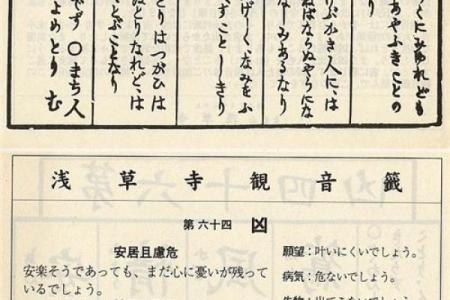 くにみゆれども
あやふきことの
り
りぶかき人には
ねばならぬやうにな
なしみあるなり
げしく、なみをふ
すことしきり
とりはつがひは
ぬどりなれど、は
ぶことなり
ず ○まち人
よめとり む
浅草寺観音籤
第六十四 凶
安居且慮危
安楽そうであっても、まだ心に憂いが残って
いるでしょう。
願望：叶いにくいでしょう。
病気：危ないでしょう。